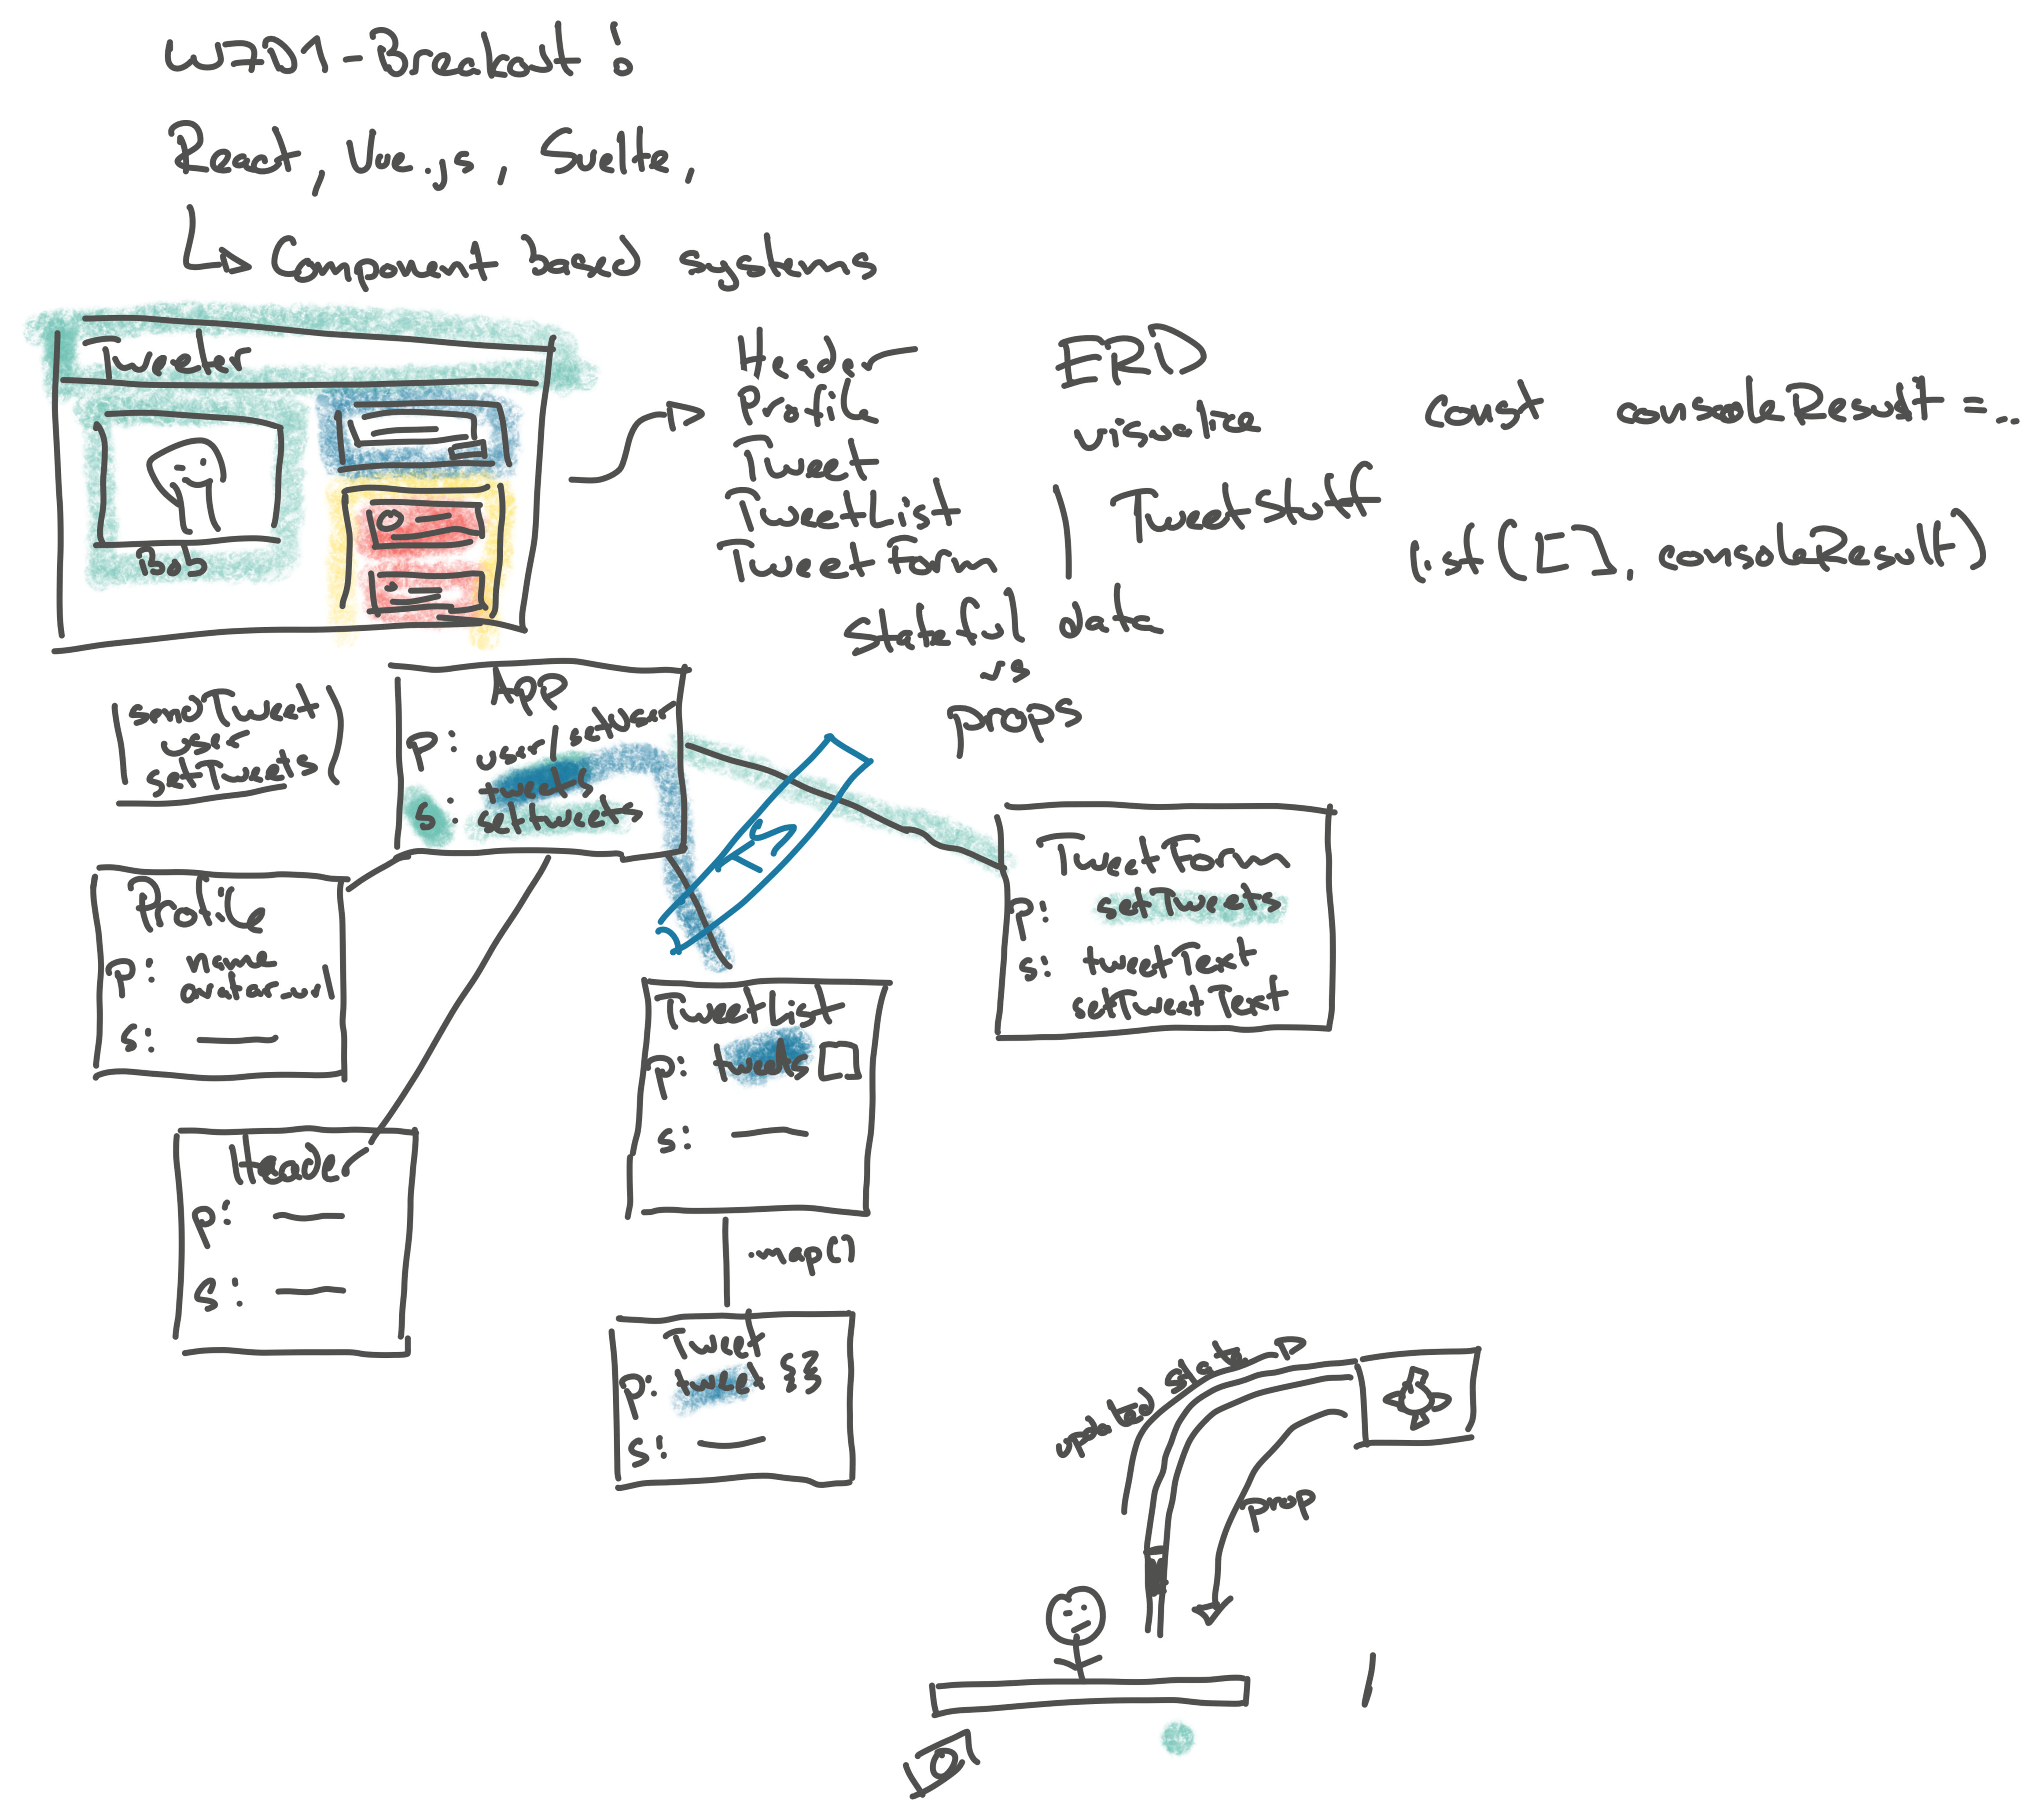 W7D1 - Breakout !
React, Vue.js, Svelte,
Component based systems
Tweeter
Bob
Header
Profile
Tweet
TweetList
TweetForm
ERD
visualize
TweetStuff
const consoleResult = ..
list([], consoleResult)
Stateful data
vs
props
sendTweet
user
setTweets
App
p: user/setUser
tweets
s: settweets
Profile
p: name
avatar_url
s:
Header
p:
s:
TweetList
p: tweets []
s:
.map()
Tweet
p: tweet {}
s:
TweetForm
p: setTweets
s: tweetText
setTweetText
updated state
prop